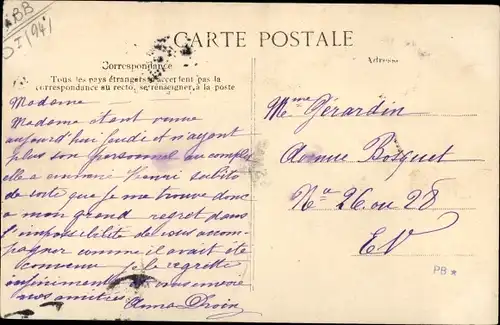 ABB
CARTE POSTALE
Correspondance
Adresse
Tous les pays étrangers n'acceptent pas la
correspondance au recto, se renseigner, à la poste
Madame
Madame étant venue
aujourd'hui jeudi et n'ayant
plus son personnel au complet
elle a emmené Henri subito
de sorte que je me trouve donc
a mon grand regret dans
l'impossibilité de vous accom-
pagner comme il avait été
convenu je le regrette
infiniment vous envoie
nos amitiés Anna
Mme Gérardin
Avenue Bosquet
No 26 ou 28
EV
PB *